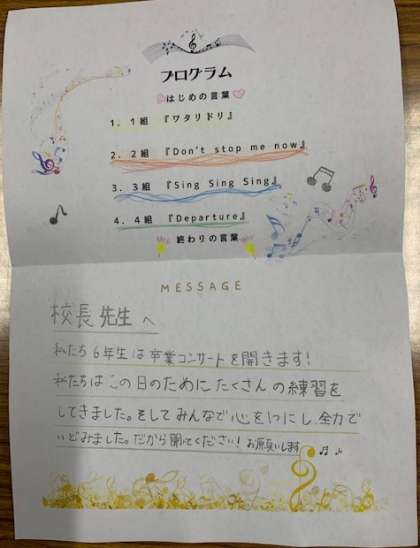 プログラム
はじめの言葉
1. 1組 『ワタリドリ』
2. 2組 『Don't stop me now』
3. 3組 『Sing Sing Sing』
4. 4組 『Departure』
終わりの言葉
MESSAGE
校長先生へ
私たち6年生は卒業コンサートを開きます!
私たちはこの日のためにたくさんの練習を
してきました。そしてみんなで心を1つにし、全力で
いどみました。だから聞いてください!お願いします